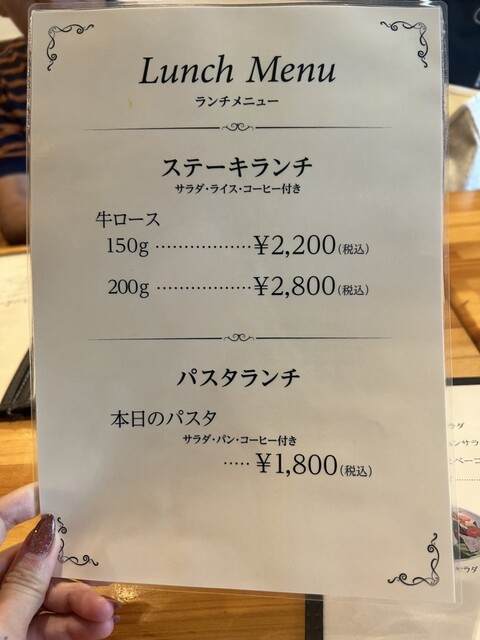 Lunch Menu
ランチメニュー
ステーキランチ
サラダ・ライス・コーヒー付き
牛ロース
150g ················· ¥2,200(税込)
200g ················· ¥2,800(税込)
パスタランチ
本日のパスタ
サラダ・パン・コーヒー付き
····· ¥1,800(税込)